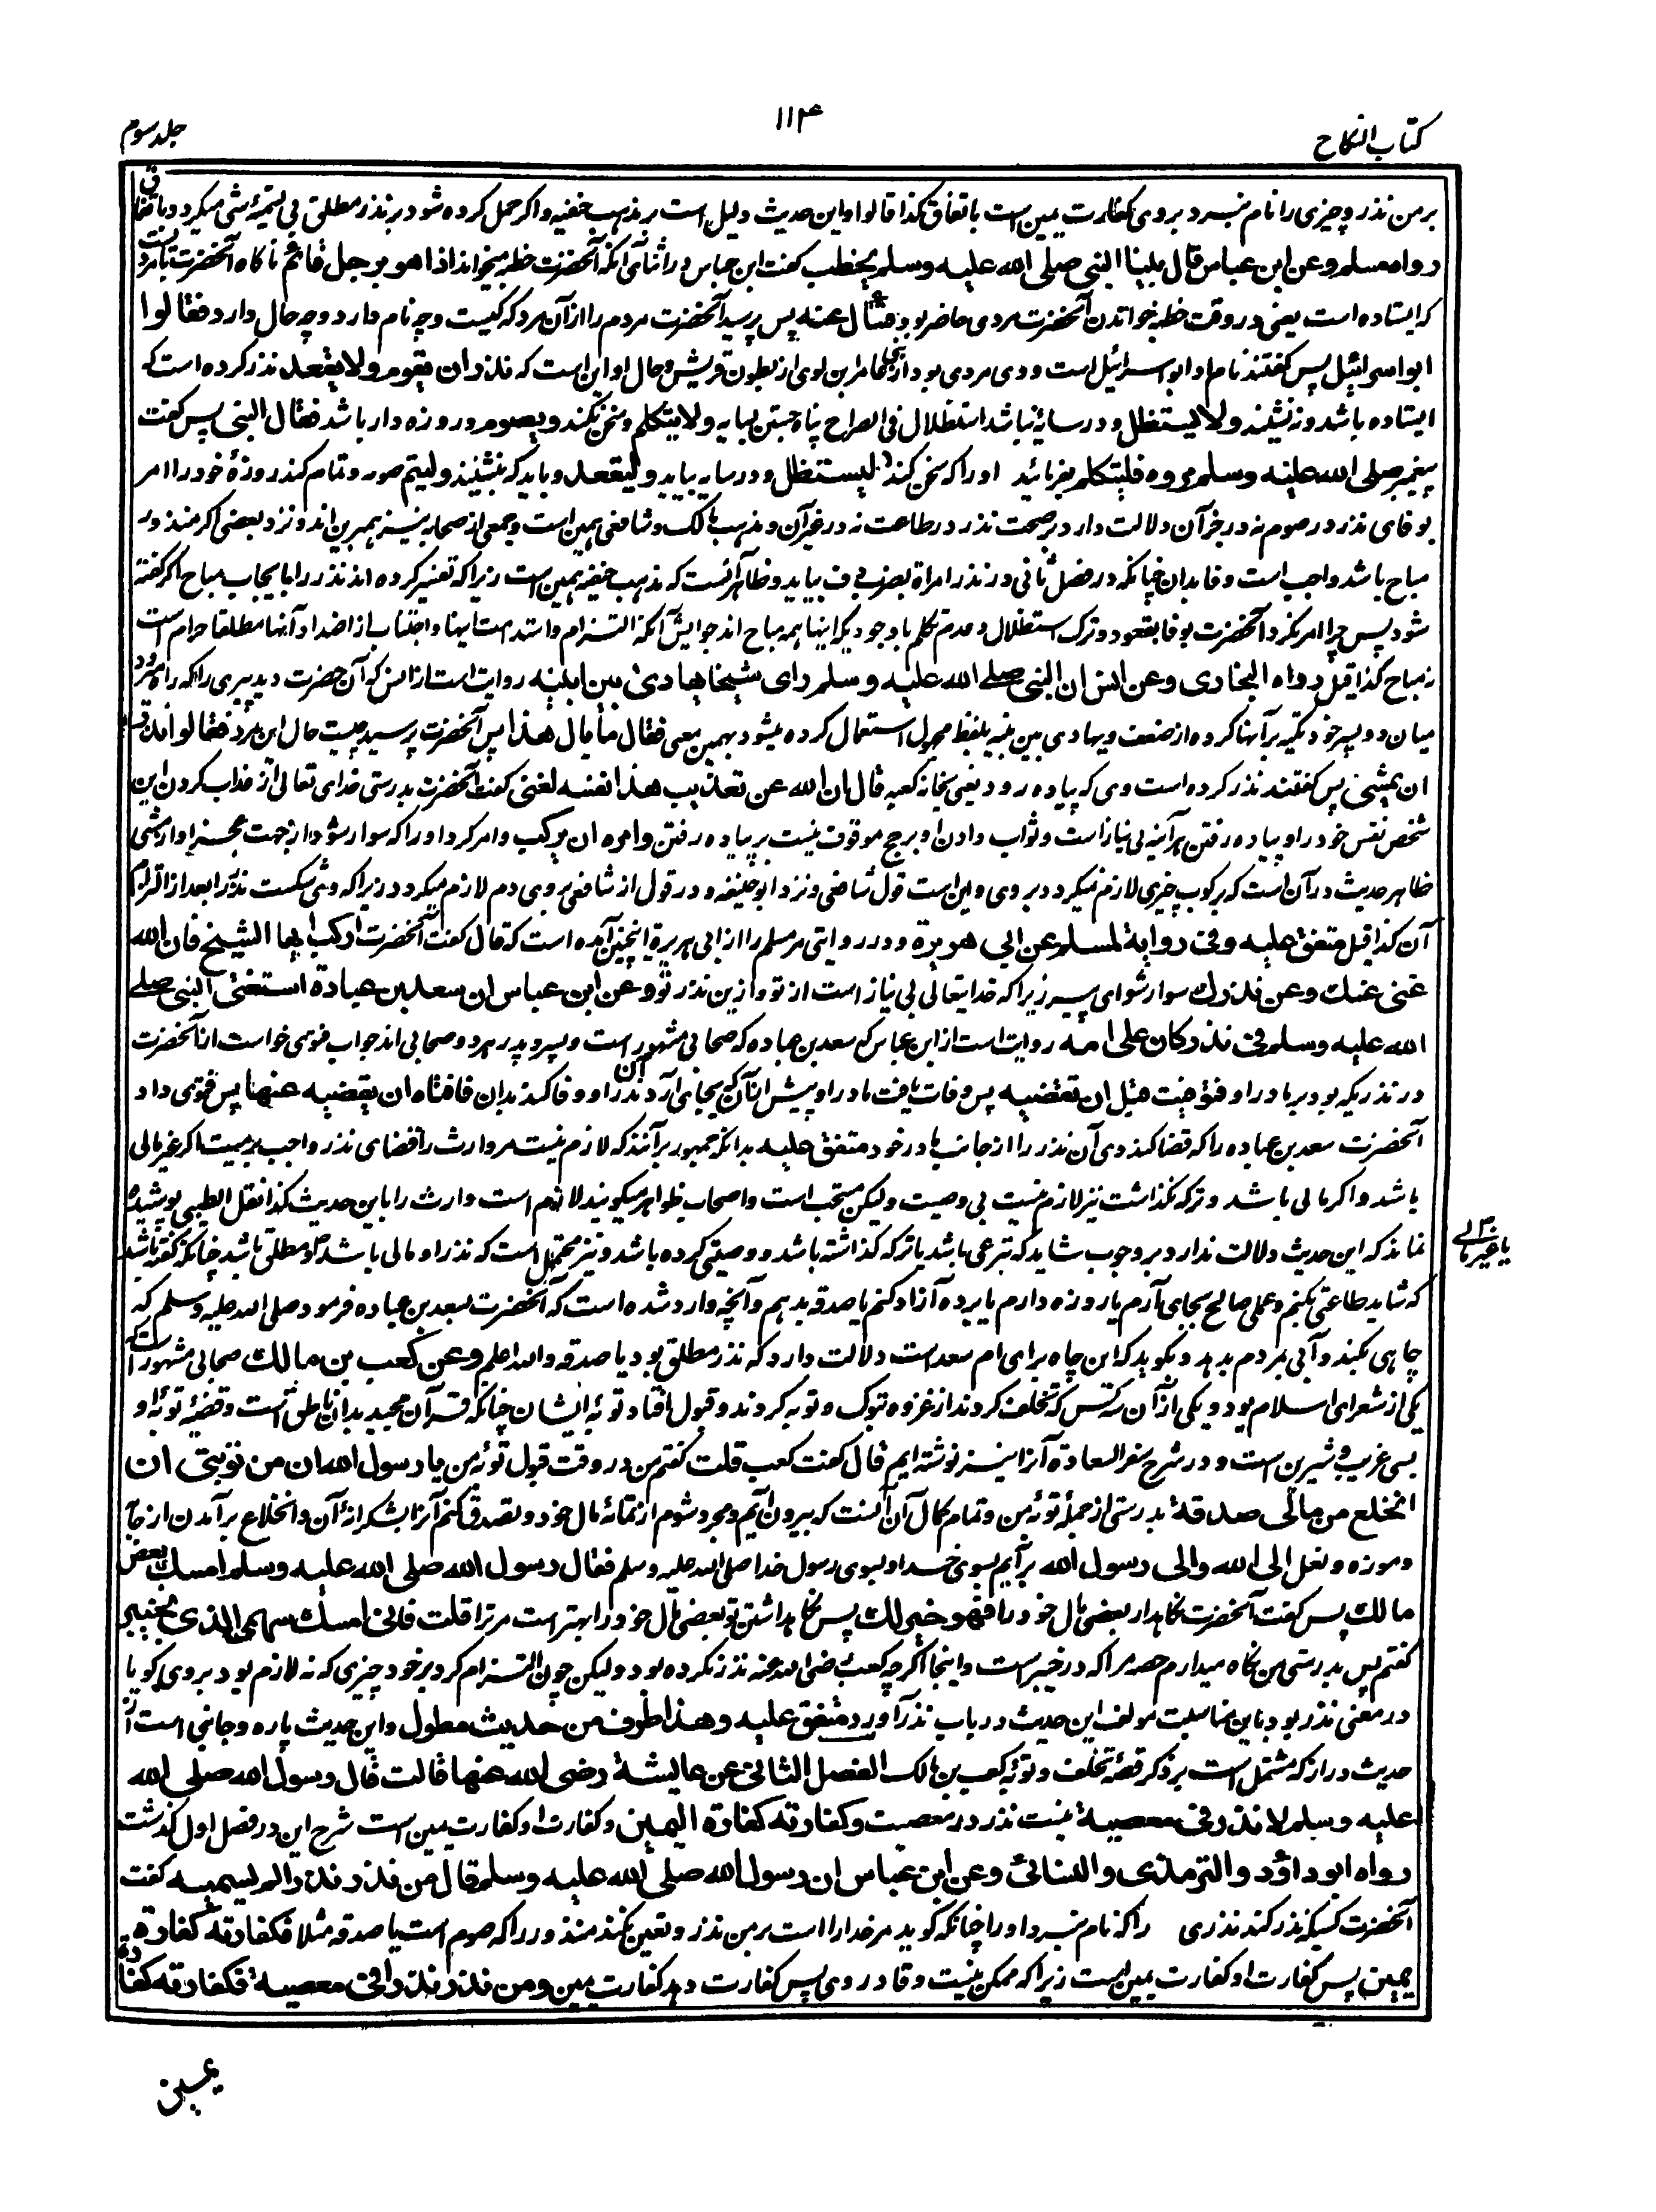 کتاب النکاح
۱۱۴
جلد سوم
بر من نذر و چیزی را نام نبرد بروی کفارت یمین است باتفاق کذا قالوا و این حدیث دلیل است بر مذهب حنفیه و اگر حمل کرده شود بر نذر مطلق بی تسمیهٔ شی میگردد باتفاق
رواه مسلم وعن ابن عباس قال بینا النبی صلی الله علیه وسلم یخطب گفت ابن عباس در اثنای آنکه آنحضرت خطبه میخواند اذا هو برجل قائم ناگاه آنحضرت بامردیست
که ایستاده است یعنی در وقت خطبه خواندن آنحضرت مردی حاضر بود فسأل عنه پس پرسید آنحضرت مردم را از آن مرد که کیست و چه نام دارد و چه حال دارد فقالوا
ابو اسرائیل پس گفتند نام او ابو اسرائیل است و وی مردی بود از بنی عامر بن لوی از بطون قریش و حال او این است که نذر ان یقوم ولا یقعد نذر کرده است که
ایستاده باشد و نه نشیند ولا یستظل و در سایه نباشد استظلال فی الصراح پناه جستن بسایه ولا یتکلم و سخن نکند و یصوم و روزه دار باشد فقال النبی پس گفت
پیغمبر صلی الله علیه وسلم مروه فلیتکلم بفرمائید او را که سخن کند و لیستظل و در سایه بیاید و لیقعد و باید که بنشیند ولیتم صومه و تمام کند روزهٔ خود را امر
بوفای نذر در صوم نه در جز آن دلالت دارد بر صحت نذر در طاعت نه در غیر آن و مذهب مالک و شافعی همین است و جمعی از صحابه نیز همبرین اند و نزد بعضی اگر منذور
مباح باشد واجب است وفا بدان چنانکه در فصل ثانی در نذر امرأة بضرب دف بیاید و ظاهر آنست که مذهب حنفیه همین است زیرا که تفسیر کرده اند نذر را بایجاب مباح اگر گفته
شود پس چرا امر نکرد آنحضرت بوفا بقعود و ترک استظلال و عدم تکلم با وجودیکه اینها همه مباح اند جوابش آنکه التزام و استدامت اینها و اجتناب از اضداد آنها مطلقا حرام است
نه مباح کذا قیل رواه البخاری وعن انس ان النبی صلی الله علیه وسلم رای شیخا یهادی بین ابنیه روایت است از انس که آن حضرت دید پیری را که راه میرود
میان دو پسر خود تکیه بر آنها کرده از ضعف و یهادی بین بنیه بلفظ مجهول استعمال کرده میشود بهمین معنی فقال ما بال هذا پس آنحضرت پرسید چیست حال این مرد فقالوا نذر
ان یمشی پس گفتند نذر کرده است وی که پیاده رود یعنی بخانه کعبه قال ان الله عن تعذیب هذا نفسه لغنی گفت آنحضرت بدرستی خدای تعالی از عذاب کردن این
شخص نفس خود را و پیاده رفتن هرآینه بی نیاز است و ثواب دادن او بر حج موقوف نیست بر پیاده رفتن وامره ان یرکب و امر کرد او را که سوار شود از جهت عجز او از مشی
ظاهر حدیث در آن است که برکوب چیزی لازم نمیگردد بروی و این است قول شافعی و نزد ابوحنیفه و در قول از شافعی بروی دم لازم میگردد زیرا که وی شکست نذر را بعد از التزام
آن کذا قیل متفق علیه وفی روایة لمسلم عن ابی هریرة و در روایتی مر مسلم را از ابی هریرة اینچنین آمده است که قال گفت آنحضرت ارکب ایها الشیخ فان الله
غنی عنک وعن نذرک سوار شو ای پیر زیرا که خدایتعالی بی نیاز است از تو و ازین نذر تو وعن ابن عباس ان سعد بن عبادة استفتی النبی صلی
الله علیه وسلم فی نذر کان علی امه روایت است از ابن عباس که سعد بن عباده که صحابی مشهور است و پسر و پدر هر دو صحابی اند جواب فتوی خواست از آنحضرت
در نذریکه بود بر مادر او فتوفیت قبل ان تقضیه پس وفات یافت مادر او پیش از آن که بجای آرد آن نذر را و وفا کند بدان فافتاه ان یقضیه عنها پس فتوی داد
آنحضرت سعد بن عباده را که قضا کند وی آن نذر را از جانب مادر خود متفق علیه بدانکه جمهور برآنند که لازم نیست مر وارث را قضای نذر واجب بر میت اگر غیر مالی
باشد و اگر مالی باشد و ترکه نگذاشت نیز لازم نیست بی وصیت ولیکن مستحب است و اصحاب ظواهر میگویند لازم است وارث را باین حدیث کذا نقل الطیبی پوشیده
نماند که این حدیث دلالت ندارد بر وجوب شاید که تبرعی باشد یا ترکه گذاشته باشد و وصیتی کرده باشد و نیز محتمل است که نذر او مالی باشد و مطلق باشد چنانکه گفته باشد
یا غیر مالی
که شاید طاعتی بکنم و عملی صالح بجای آرم یا روزه دارم یا برده آزاد کنم یا صدقه بدهم و آنچه وارد شده است که آنحضرت بسعد بن عباده فرمود صلی الله علیه وسلم که
چاهی بکند و آبی بمردم بدهد و بگوید که این چاه برای ام سعد است دلالت دارد که نذر مطلق بود یا صدقه و الله اعلم وعن کعب بن مالک صحابی مشهور است
یکی از شعرای اسلام بود و یکی از آن سه کس که تخلف کردند از غزوه تبوک و توبه کردند و قبول افتاد توبهٔ ایشان چنانکه قرآن مجید بدان ناطق است و قضیهٔ توبهٔ او
بسی غریب و شیرین است و در شرح سفر السعادة آنرا نیز نوشته ایم قال گفت کعب قلت گفتم من در وقت قبول توبهٔ من یا رسول الله ان من توبتی ان
انخلع من مالی صدقة بدرستی از جملهٔ توبهٔ من و تمام کمال آن آنست که بیرون آیم و مجرد شوم از تمامهٔ مال خود و تصدق کنم آنرا بشکرانهٔ آن و انخلاع برآمدن از جامه
و موزه و نعل الی الله والی رسول الله برآیم بسوی خدا و بسوی رسول خدا صلی الله علیه وسلم فقال رسول الله صلی الله علیه وسلم امسک بعض
مالک پس گفت آنحضرت نگاهدار بعضی مال خود را فهو خیر لک پس نگاهداشتن تو بعضی مال خود را بهتر است مر ترا قلت فانی امسک سهمی الذی بخیبر
گفتم پس بدرستی من نگاه میدارم حصه مرا که در خیبر است و اینجا اگرچه کعب رضی الله عنه نذر نکرده بود ولیکن چون التزام کرد بر خود چیزی که نه لازم بود بروی گویا
در معنی نذر بود باین مناسبت مولف این حدیث در باب نذر آورد متفق علیه وهذا طرف من حدیث مطول و این حدیث پاره و جانبی است از
حدیث دراز که مشتمل است بر ذکر قصهٔ تخلف و توبهٔ کعب بن مالک الفصل الثانی عن عایشة رضی الله عنها قالت قال رسول الله صلی الله
علیه وسلم لا نذر فی معصیة نیست نذر در معصیت وکفارته کفارة الیمین و کفارت او کفارت یمین است شرح این در فصل اول گذشت
رواه ابو داؤد والترمذی والنسائی وعن ابن عباس ان رسول الله صلی الله علیه وسلم قال من نذر نذرا لم یسمه گفت
آنحضرت کسیکه نذر کند نذری را که نام نبرد او را چنانکه گوید مر خدا را است بر من نذر و تعین نکند منذور را که صوم است یا صدقه مثلا فکفارته کفارة
یمین پس کفارت او کفارت یمین است زیرا که ممکن نیست وفا در وی پس کفارت دهد کفارت یمین ومن نذر نذرا فی معصیة فکفارته کفارة
یمین